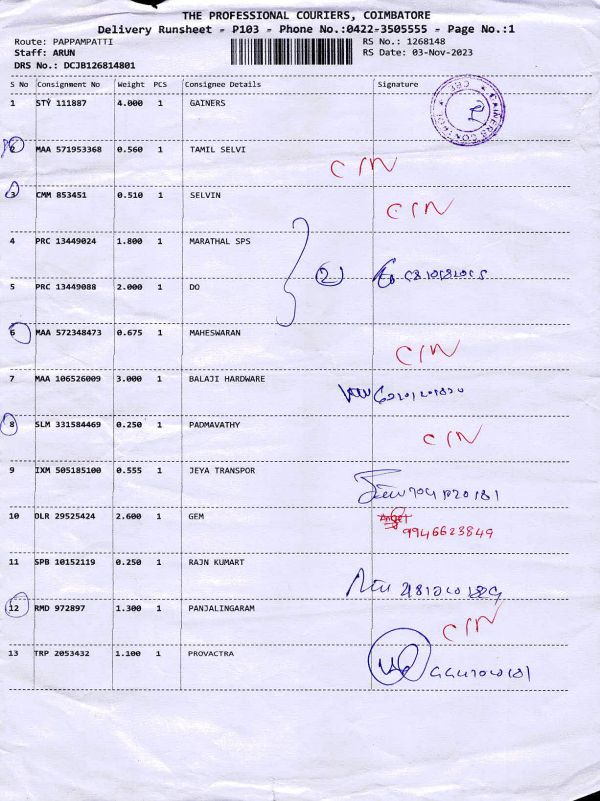 THE PROFESSIONAL COURIERS, COIMBATORE
Delivery Runsheet - P103 - Phone No.:0422-3505555 - Page No.:1
Route: PAPPAMPATTI RS No.: 1268148
Staff: ARUN RS Date: 03-Nov-2023
DRS No.: DCJB126814801
S No Consignment No Weight PCS Consignee Details Signature
1 STY 111887 4.000 1 GAINERS
2 MAA 571953368 0.560 1 TAMIL SELVI CIN
3 CMM 853451 0.510 1 SELVIN CIN
4 PRC 13449024 1.800 1 MARATHAL SPS
2
5 PRC 13449088 2.000 1 DO
6 MAA 572348473 0.675 1 MAHESWARAN CIN
7 MAA 106526009 3.000 1 BALAJI HARDWARE
8 SLM 331584469 0.250 1 PADMAVATHY CIN
9 IXM 505185100 0.555 1 JEYA TRANSPOR
10 DLR 29525424 2.600 1 GEM
9946623849
11 SPB 10152119 0.250 1 RAJN KUMART
12 RMD 972897 1.300 1 PANJALINGARAM CIN
13 TRP 2053432 1.100 1 PROVACTRA